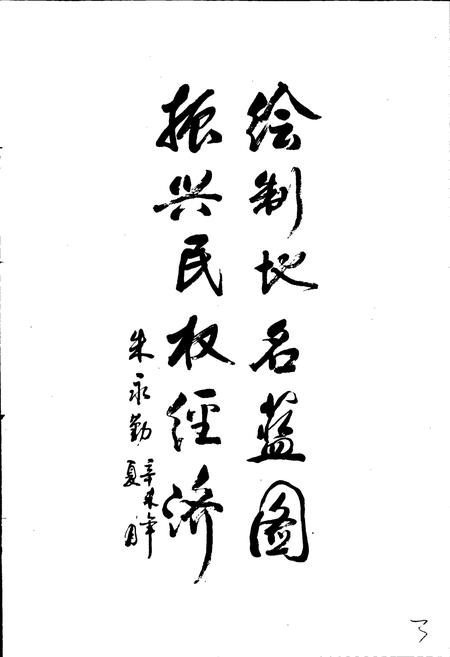 绘制地名蓝图
振兴民权经济
朱永勤
辛未年
夏月